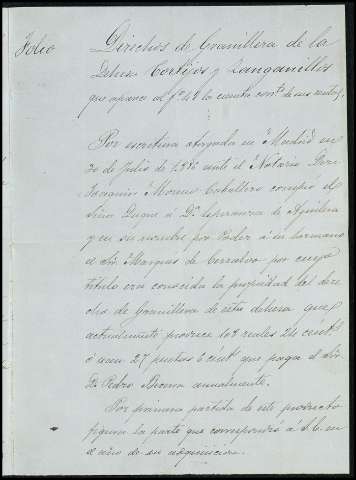 Folio
Derechos de Granillera de la
Dehesa Cortijos y Zanganillos
que aparece al fº 48 la cuenta corrte de sus rentas.
Por escritura otorgada en Madrid en
30 de Julio de 1.876 ante el Notario Don
Joaquin Moreno Caballero compró el
Señor Duque a Dª Esperanza de Aguilera
y en su nombre por Poder á su hermano
el Sr. Marques de Cerralvo por cuyo
título era conocida la propiedad del dere
cho de Granillera de esta dehesa que
actualmente produce 108 reales 24 cents
ó sean 27 pesetas 6 cents que paga el Sr.
D. Pedro anualmente.
Por primera partida de este producto
figura la parte que correspondió á S.E. en
el año de su adquisicion.